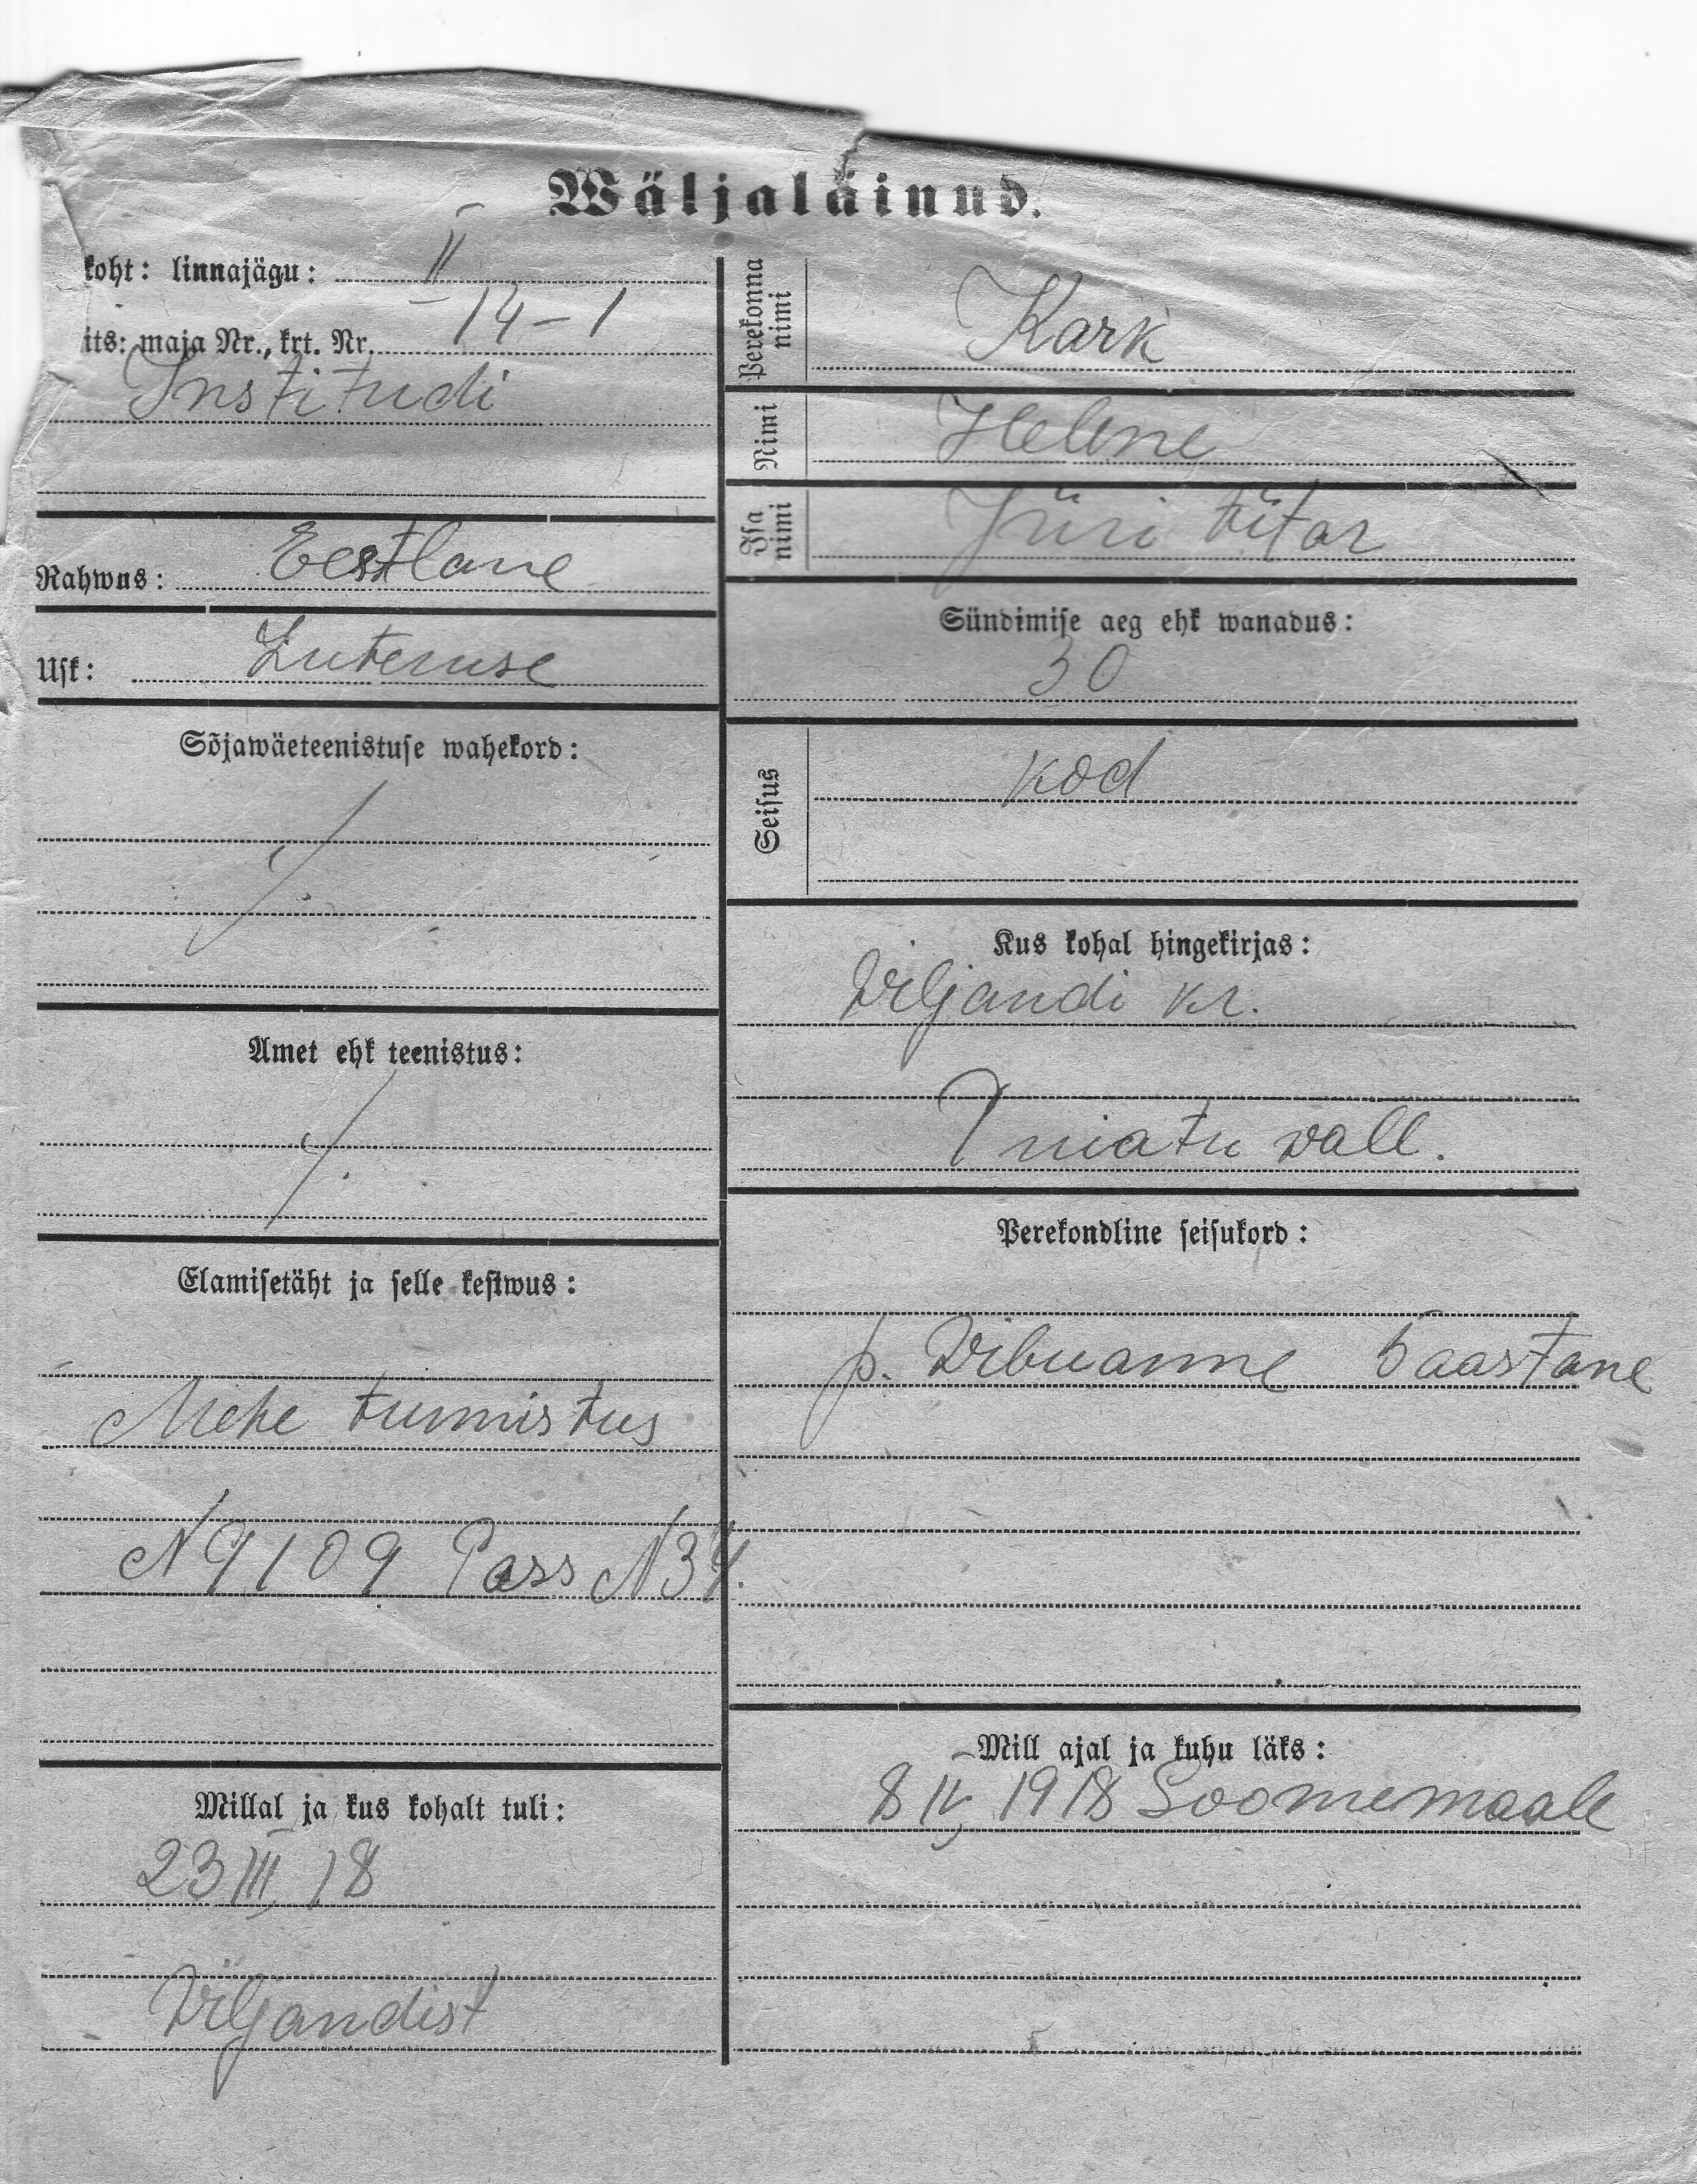 Wäljaläinud.
koht: linnajägu: II
its: maja Nr., krt. Nr. 14-1
Institudi
Rahwus: Eestlane
Usk: Luteruse
Sõjawäeteenistuse wahekord:
Amet ehk teenistus:
Elamisetäht ja selle kestwus:
Mehe tunnistus
N 9109 Pass N 34.
Millal ja kus kohalt tuli:
23 III 18
Viljandist
Perekonna nimi
Kark
Nimi
Helene
Isa nimi
Jüri tütar
Sündimise aeg ehk wanadus:
30
Seisus
kod
Kus kohal hingekirjas:
Viljandi kr.
wall.
Perekondline seisukord:
p. 5 aastane
Mill ajal ja kuhu läks:
8 IV 1918 Soomemaale